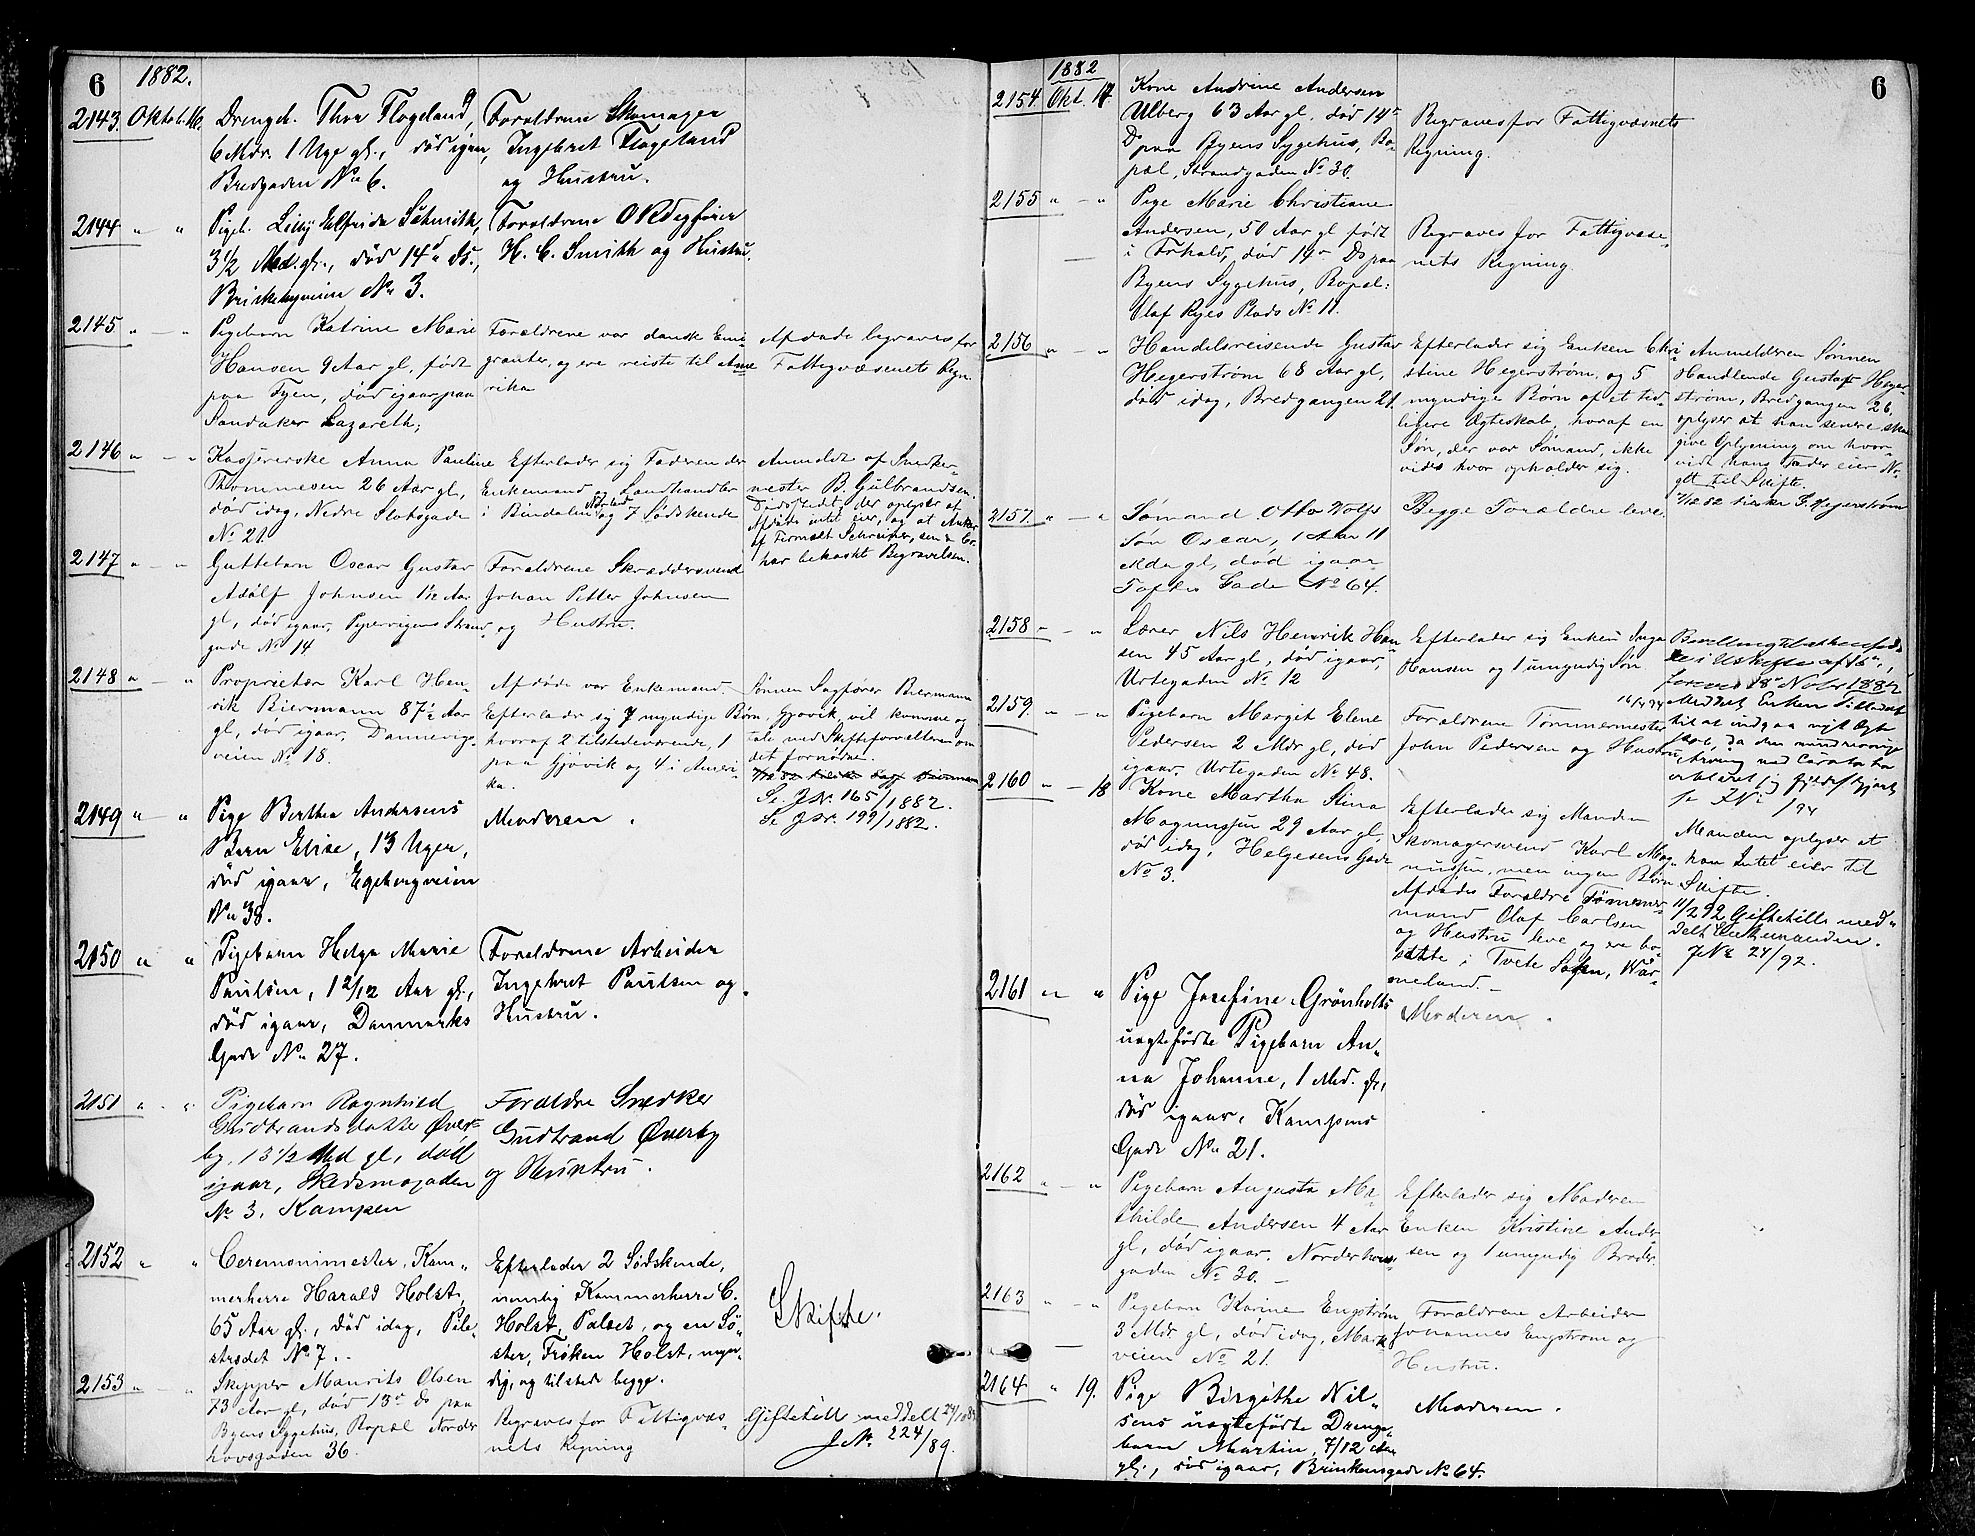 6 1882.
2143. Oktob. 16. Drengeb. Thor Flogeland, Forældrene Skomager
6 Mdr. 1 Uge gl., død igaar, Ingebret Flageland
Bredgaden No 6. og Hustru.
2144 " " Pigeb. Lilly Elfrida Schmith, Forældrene
3 1/2 Md. gl., død 14de ds., H. C. Smith og Hustru.
Briskebyveien No 3.
2145 " - " Pigebarn Katrine Marie Forældrene var danske Emi- Afdøde begraves for
Hansen 9 Aar gl, født granter, og ere reiste til Ame Fattigvæsenets Regn.
paa Fyen, død igaar paa rika
Sandaker Lazareth;
2146 " - " Kassererske Anna Pauline Efterlader sig Faderen der Anmeldt af Snedker-
Thommesen 26 Aar gl, Enkemand, Landhandler mester B. Gulbrandsen.
død idag, Nedre Slotsgade i Bindalen og 7 Sødskende Dødsstedet, der oplyser at
No 21. Afdøde intet eier, og at
har bekostet Begravelsen.
2147 " - " Guttebarn Oscar Gustav Forældrene Skræddersvend
Adolf Johnsen 1 1/2 Aar Johan Petter Johnsen
gl, død igaar, Pipervigens Strand og Hustru.
gade No 14
2148 " - " Proprietær Karl Hen- Afdøde var Enkemand. Sønnen Sagfører Biermann
rik Biermann 87 1/2 Aar Efterlader sig 7 myndige Børn, Gjøvik, vil komme og
gl, død igaar, Dannevigs- hvoraf 2 tilstedeværende, 1 tale med Skifteforvalteren om
veien No 18. paa Gjøvik og 4 i Ameri- det fornødne.
ka. Se JNr. 165/1882.
Se JNr. 199/1882.
2149 " " Pige Berthea Andersens Moderen.
Barn Elise, 13 Uger,
død igaar, Egebergveien
No 38.
2150 " " Pigebarn Helga Marie Forældrene Arbeider
Paulsen, 1 2/12 Aar gl., Ingebret Paulsen og
død igaar, Danmarks Hustru.
Gade No 27.
2151 " - " Pigebarn Ragnhild Forældre Snedker
Gudbrandsdatter Øver- Gudbrand Øverby
by, 13 1/2 Md gl, død og Hustru.
igaar, Skedsmogaden
No 3, Kampen
2152 " " Ceremonimester, Kam- Efterlader 2 Sødskende,
merherre Harald Holst, nemlig Kammerherre C. Skifte.
65 Aar gl., død idag, Pile- Holst, Palæet, og en Sø-
strædet No 7. ster, Frøken Holst, myn-
dig, og tilstede begge.
2153 " - " Skipper Maurits Olsen
73 Aar gl, død 13de Ds paa
Byens Sygehus, Bopæl Norder Begraves for Fattigvæs- Giftetill. meddelt
hovsgaden 36. nets Regning JNr. 224/89.
1882 6
2154 Okt. 17. Kone Andrine Andersen
Ulberg 63 Aar gl, død 14de Begraves for Fattigvæsnets
D paa Byens Sygehus, Bo- Regning.
pæl, Strandgaden No 30.
2155 " - " Pige Marie Christiane
Andersen, 50 Aar gl født Begraves for Fattigvæse-
i Frhald, død 14de Ds paa nets Regning.
Byens Sygehus, Bopæl:
Olaf Ryes Plads No 11.
2156 " - " Handelsreisende Gustav Efterlader sig Enken Chri- Anmelderen Sønnen
Hegerstrøm 68 Aar gl, stine Hegerstrøm, og 5 Handlende Gustaf Heger-
død idag, Bredgangen 21. myndige Børn af et tid- strøm, Bredgangen 26,
ligere Ægteskab, hvoraf en oplyser at han senere skal
Søn, der var Sømand, ikke give Oplysning om hvor-
vides hvor opholder sig. vidt hans Fader eier No-
get til Skifte.
2157. " - " Sømand Otto Wolfs Begge Forældre leve.
Søn Oscar, 1 Aar 11
Mdr gl, død igaar
Toftes Gade No 64.
2158 " - " Lærer Nils Henrik Han Efterlader sig Enken Inga
sen 45 Aar gl, død igaar, Hansen og 1 umyndig Søn
Urtegaden No 12
2159. " - " Pigebarn Margit Elene Forældrene Tømmermester
Pedersen 2 Mdr gl, død John Pedersen og Hustru
igaar. Urtegaden No 48.
2160 " - 18 Kone Martha Stina Efterlader sig Manden
Magnussen 29 Aar gl, Skomagersvend Karl Mag- Manden oplyser at
død idag, Helgesens Gade nussen, men ingen Børn han Intet eier til
No 3. Afdødes Forældre Tømmer- Skifte.
mand Olaf Carlsen 11/2 92 Giftetill. med-
og Hustru leve og ere bo- delt Enkemanden.
satte i Tveta Sogn, Wär- JNr 24/92.
meland.
2161 " " Pige Josefine Grönholts Moderen.
uægtefødte Pigebarn An-
na Johanne, 1 Md. gl,
død igaar, Kampens
Gade No 21.
2162 " - " Pigebarn Augusta Ma- Efterlader sig Moderen
thilde Andersen 4 Aar Enken Kristine Ander-
gl, død igaar. Norderhovs- sen og 1 umyndig Broder.
gaden No 30.
2163 " " Pigebarn Karine Engstrøm Forældrene Arbeider
3 Mdr gl, død idag, Mark- Johannes Engstrøm og
veien No 21. Hustru.
2164 " 19. Pige Birgithe Nil- Moderen.
sens uægtefødte Drenge-
barn Martin, 7/12 Aar
gl., død igaar, Brinkensgade No 64.